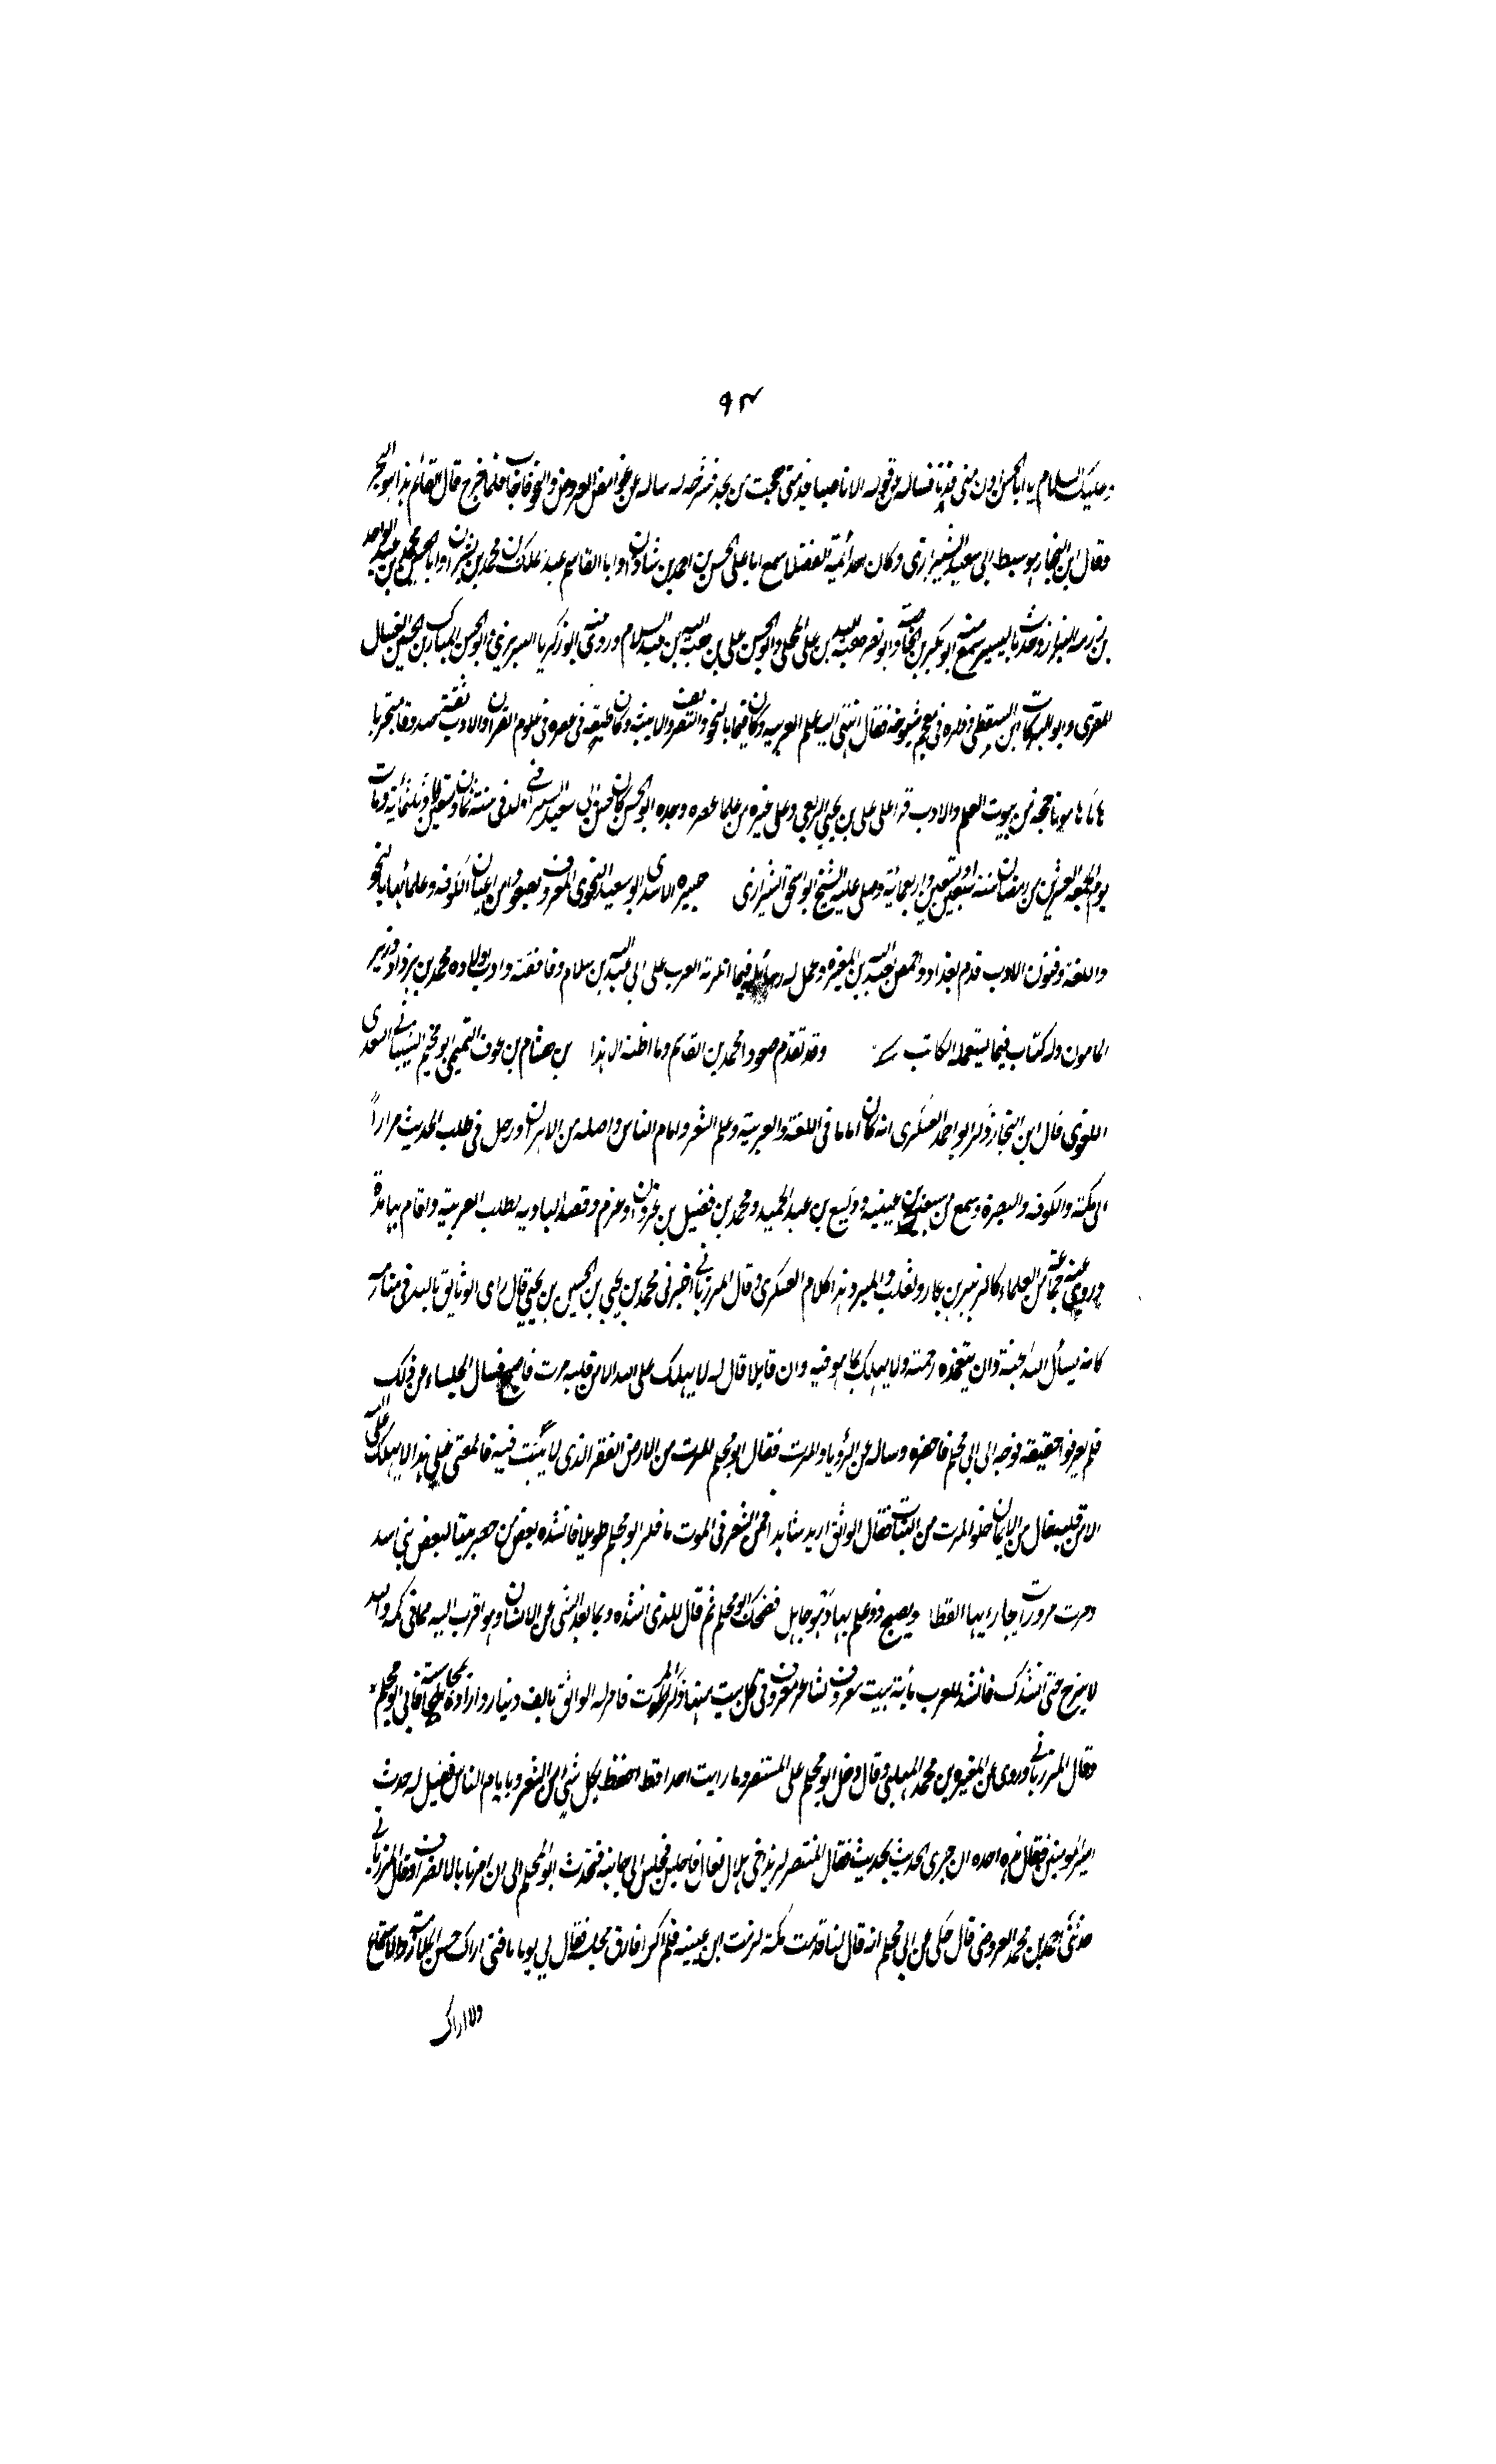 ٩٣
وعليك السلام يا ابا الحسن ادن مني فدنا فساله عن قوله الانا صبا نجد متى هجت من نجد فشرحه له ساله عن غوامض العروض والنحو فاجاب فلما خرج قال القائم هذا هو البحر
وقال ابن النجار هو سبط ابي سعيد الشيرازي وكان احد ائمة الفضلا سمع ابا علي الحسن بن احمد بن شاذان وابا القاسم عبد الملك بن محمد بن بشران وابا الحسين محمد بن عبد الواحد
بن رزمه البزاز وحدث باليسير سمع منه ابو بكر بن الخاضبة وابو نصر هبة الله بن علي المجلي وابو الحسن علي بن هبة الله بن عبد السلام وروى عنه ابو زكريا التبريزي وابو الحسن المبارك بن الحسين الغسال
المقري وابو البركات ابن السقطي وذكره في معجم شيوخه فقال انتهى اليه علم العربية وكان قيما بالنحو والتصريف والابنية وكان طبقة في عصره في علوم القران والادب ثقة صدوقا متحريا
من بيوت العلم والادب قرا على علي بن يحيى الربعي وعلى غيره من علما عصره وجده ابو الحسن كان ختن ابي سعيد السيرافي ولد في سنة ثمان وتسعين وثلثمائة ومات
يوم الجمعة العشرين من رمضان سنة وتسعين واربعمائة وصلى عليه الشيخ ابو اسحق الشيرازي هبيره الاسدي ابو سعيد النحوي المعروف بصعودا من اعيان الكوفه وعلمائها بالنحو
واللغة وفنون الادب قدم بغداد واتصل بعبد الله بن المعتز وعمل له رسالة فيما انكرته العرب على ابي عبيد بن سلام ووافقته وادب اولاده محمد بن يزداد وزير
المامون وله كتاب فيما يستعمله الكاتب وقد تقدم صعودا محمد بن القاسم وما اظنه الا هذا بن هشام بن عوف التميمي ابو محلم الشيباني السعدي
اللغوي قال ابن النجار ذكر ابو احمد العسكري انه كان اماما في اللغة والعربية وعلم الشعر وايام الناس واصله من الاهواز ورحل في طلب الحديث مرارا
الى مكة والكوفه والبصرة وسمع من سفين بن عيينه ووكيع بن عبد الحميد ومحمد بن فضيل بن غزوان وعزم وقصد البادية لطلب العربية واقام بها مدة
وروى عنه جماعة من العلماء كالزبير بن بكار وثعلب والمبرد وهذا كلام العسكري وقال المرزباني اخبرني محمد بن يحيى بن الحسين بن يحيى قال راى الواثق بالله في منامه
كانه يسال الله الجنة وان يتغمده برحمته ولا يهلك بما هو فيه وان قايلا قال له لا يهلك على الله الا من قلبه مرت فاصبح فسال الجلساء عن ذلك
فلم يعرفوا حقيقته فوجه الى ابي محلم فاحضره وساله عن الرؤيا والمرت فقال ابو محلم المرت من الارض القفر الذي لا نبت فيه فالمعنى على هذا لا يهلك على الله
الا من قلبه خال من الايمان خلو المرت من النبات فقال الواثق اريد شاهدا من الشعر في المرت فافكر ابو محلم طويلا فانشده بعض من حضر بيتا لبعض بني اسد
ومرت مرورات يحار بها القطا ويصبح ذو علم بها وهو جاهل فضحك ابو محلم ثم قال للذي انشده ربما بعد الشي عن الانسان وهو اقرب اليه مما في كمه والله
لا تبرح حتى انشدك فانشد للعرب مائة بيت معروف لشاعر معروف في كل بيت منها ذكر المرت فامر له الواثق بالف دينار واراده لمجالسته فابى ابو محلم
وقال المرزباني وروى عن المغيرة بن محمد المهلبي وقال دخل ابو محلم على المنتصر وما رايت احدا قط احفظ لكل شي من الشعر وبايام الناس فقيل له حدث
امير المومنين فقال مره احده ان جرى الحديث بحديث فقال المنتصر تعال فاجلس فجلس الى جانبه فتحدث ابو محلم الى ان امرنا بالانصراف وقال المرزباني
حدثني احمد بن محمد العروضي قال حكي عن ابي محلم انه قال لما قدمت مكة لزمت ابن عيينه فلم اكن افارق مجلسه فقال لي يوما يا فتى اراك حسن الملازمة والاستماع
ولا اراك